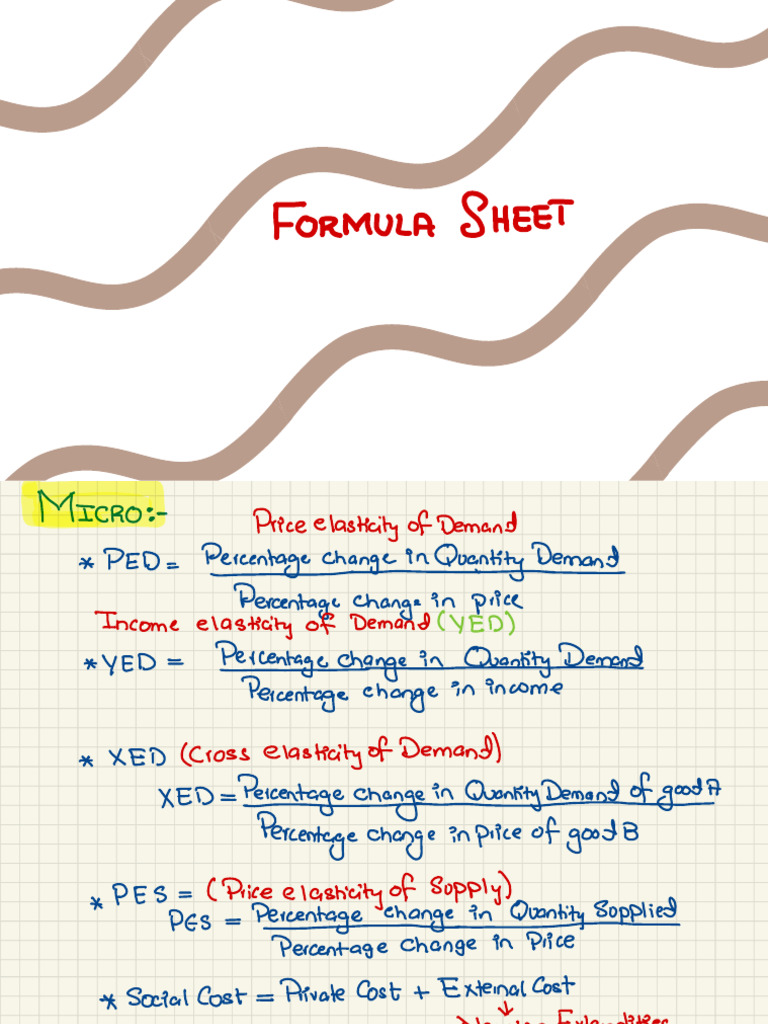 FORMULA SHEET
MICRO:-
Price elasticity of Demand
* PED = Percentage change in Quantity Demand
Percentage change in price
Income elasticity of Demand (YED)
* YED = Percentage change in Quantity Demand
Percentage change in income
* XED (Cross elasticity of Demand)
XED = Percentage change in Quantity Demand of good A
Percentage change in price of good B
* PES = (Price elasticity of Supply)
PES = Percentage change in Quantity Supplied
Percentage change in Price
* Social Cost = Private Cost + External Cost